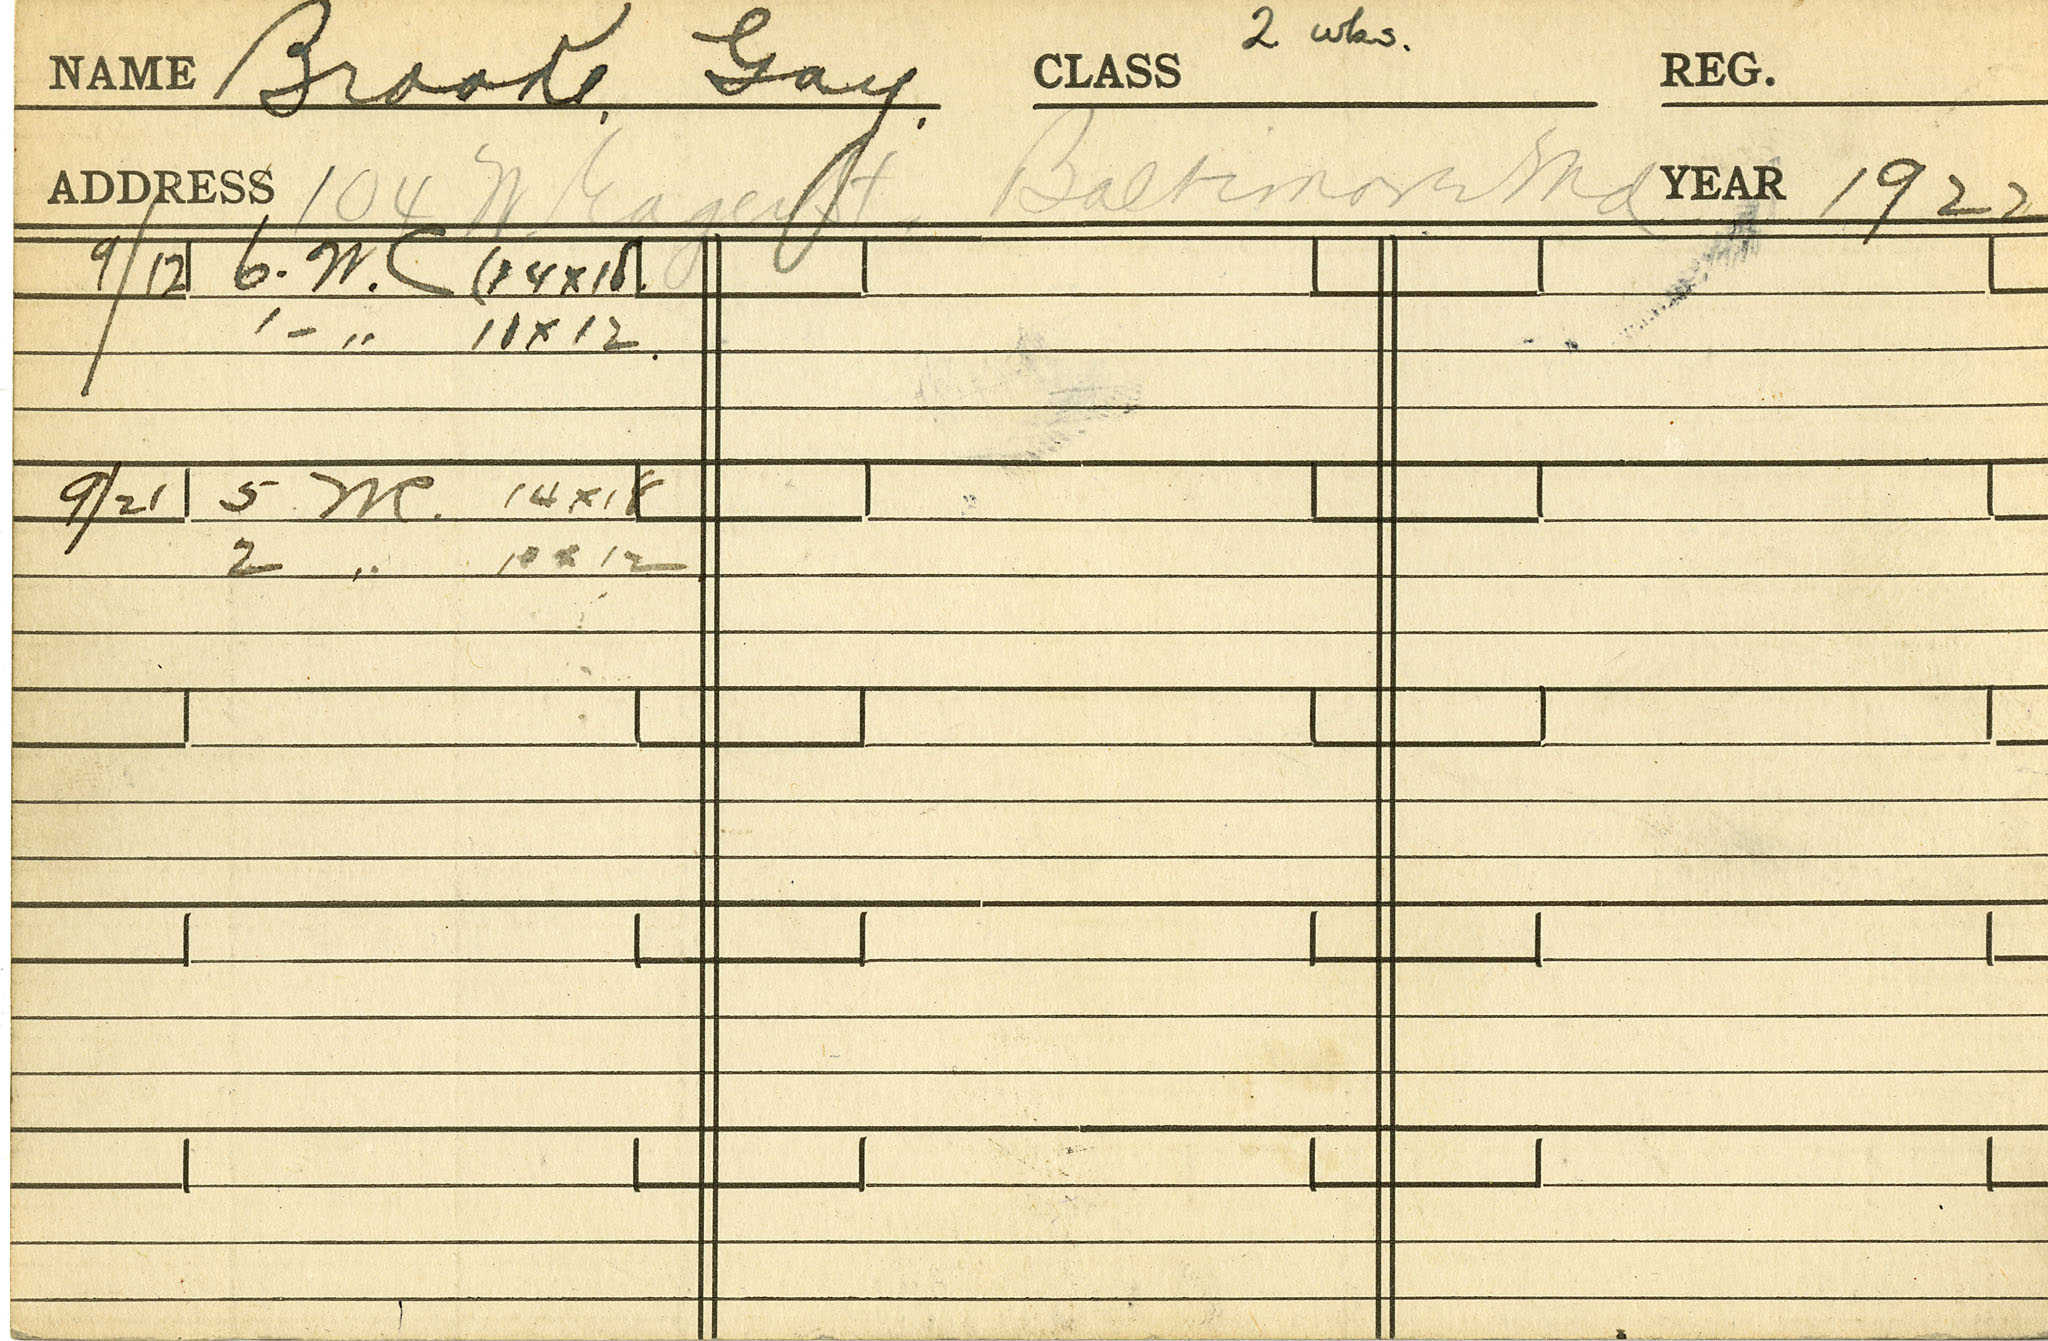 NAME Brooke, Gay. CLASS 2 wks. REG.
ADDRESS 104 W. Eager St. Baltimore Md YEAR 1922
9/12 6. W.C (14x18.
1 - " 10x12.
9/21 5 WC. 14x18
2 " 10x12